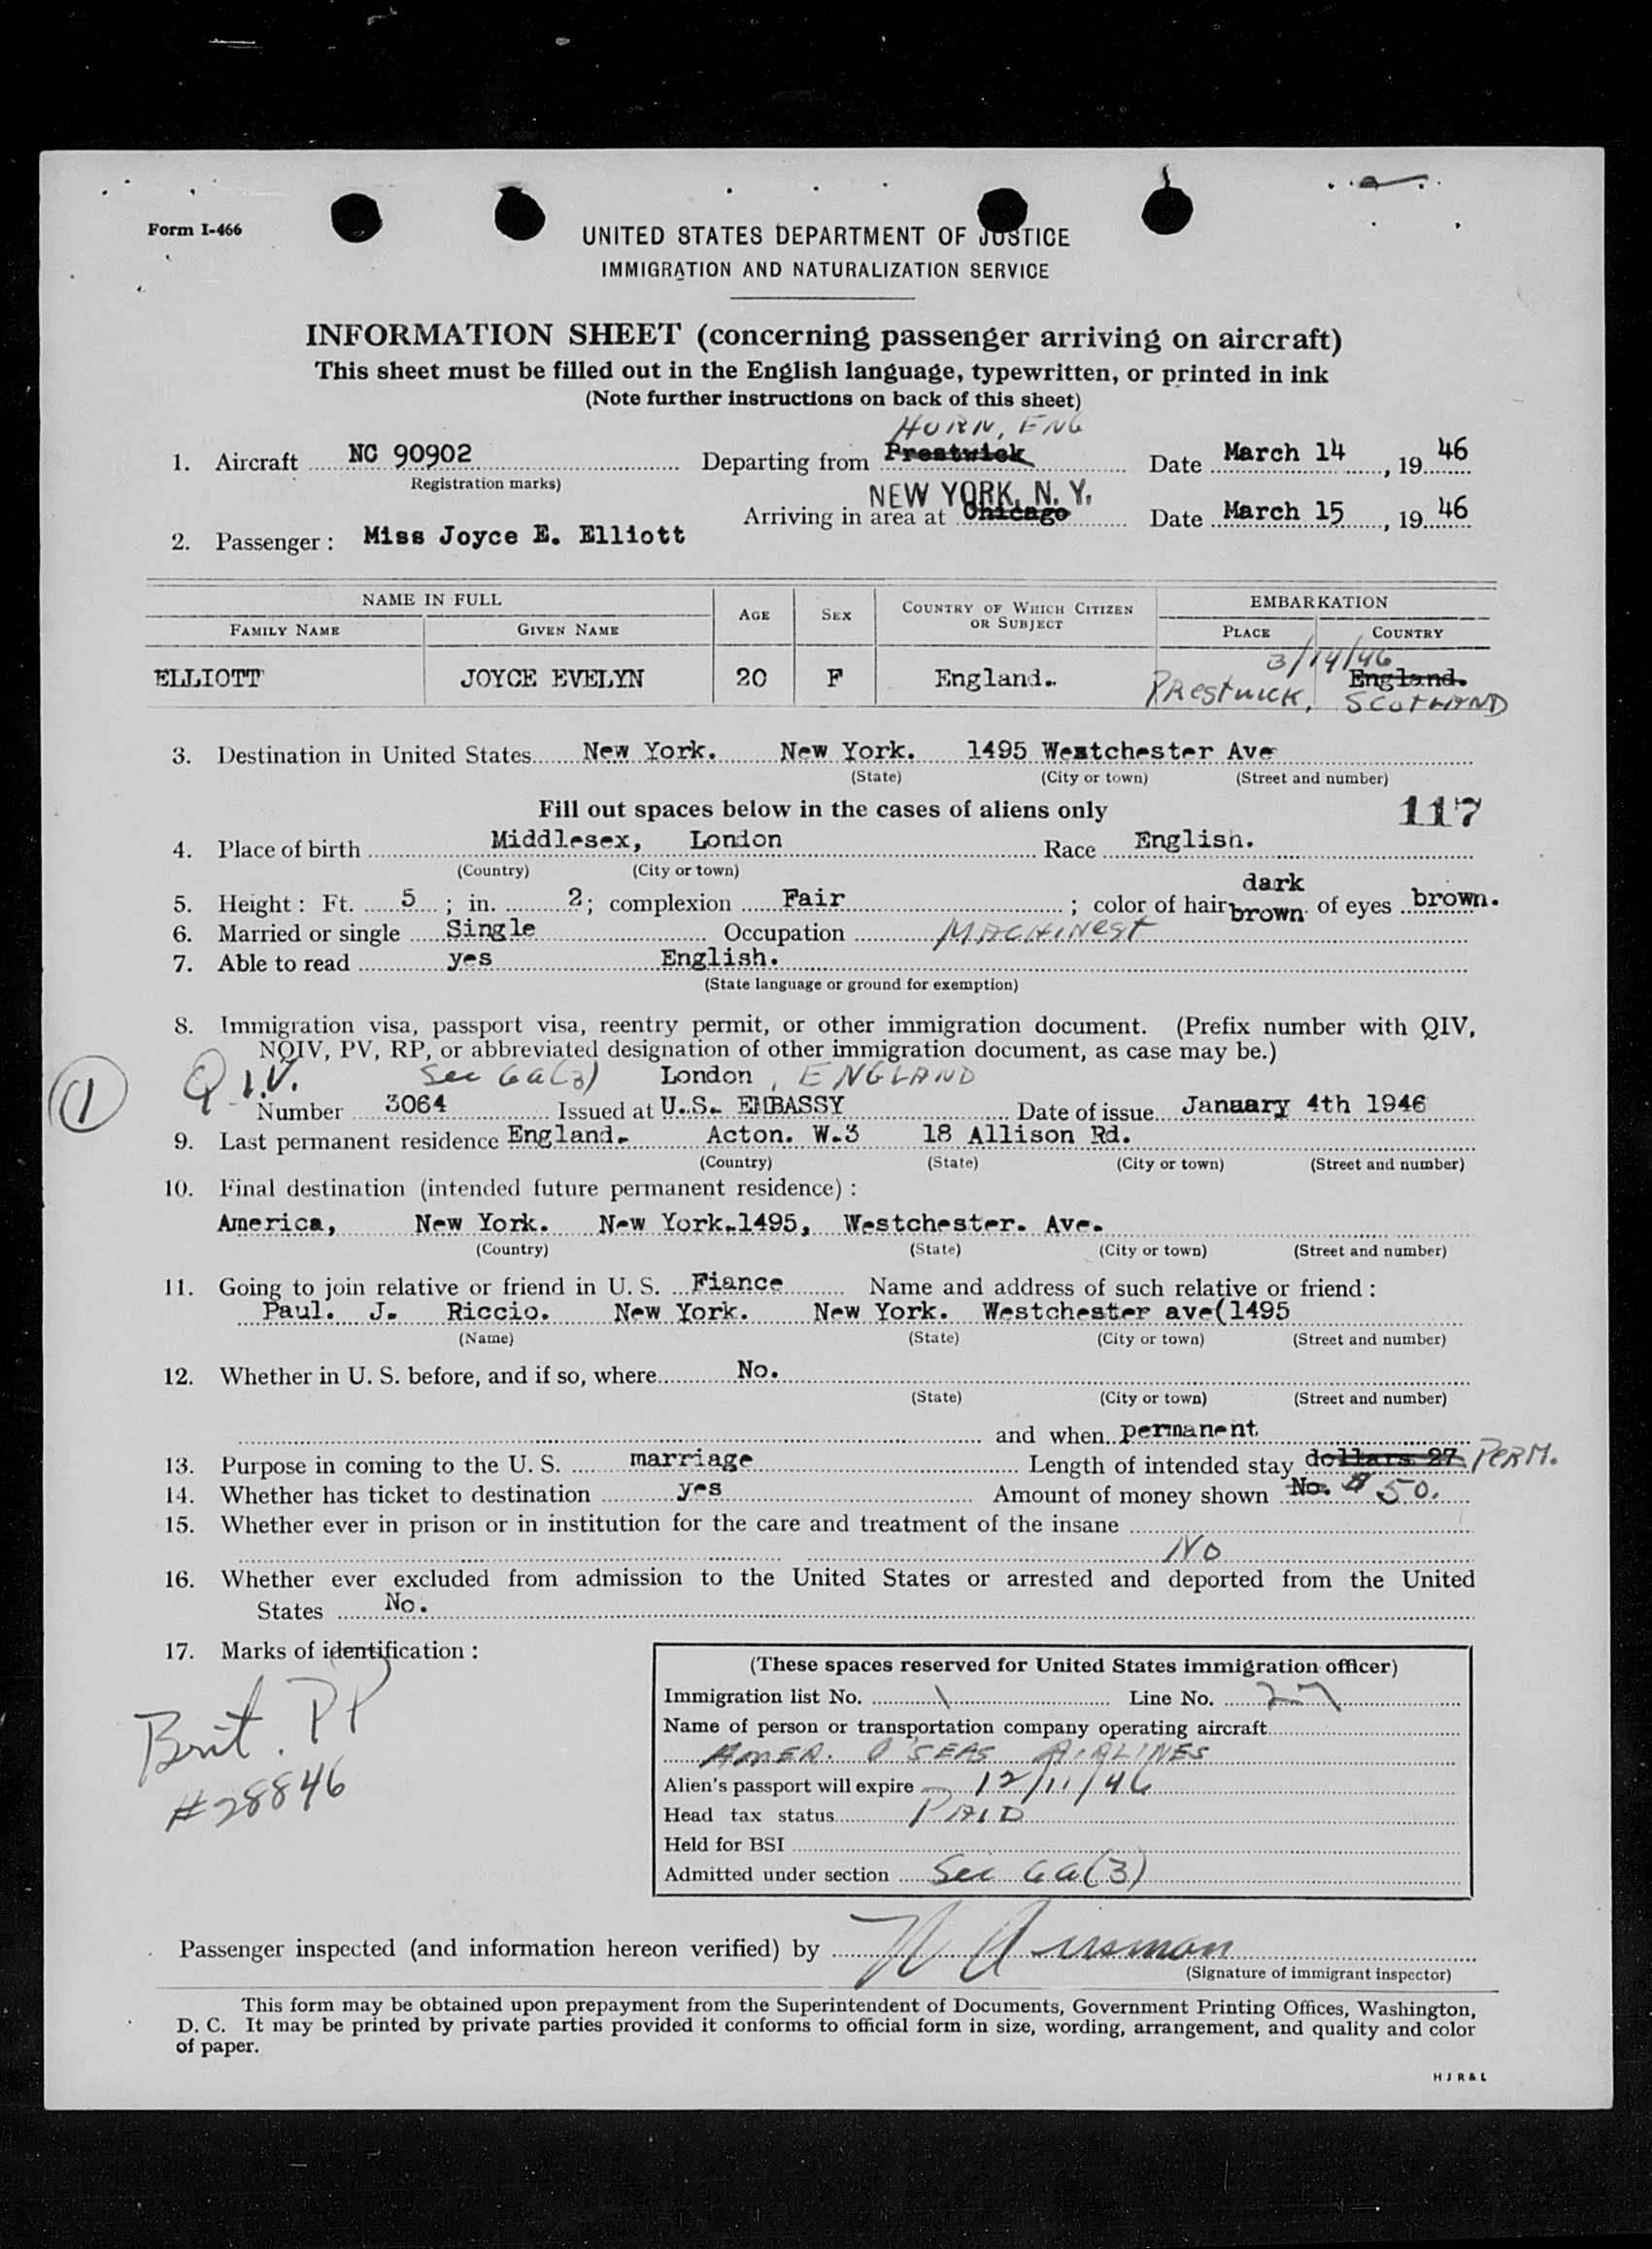 Form I-466
UNITED STATES DEPARTMENT OF JUSTICE
IMMIGRATION AND NATURALIZATION SERVICE
INFORMATION SHEET (concerning passenger arriving on aircraft)
This sheet must be filled out in the English language, typewritten, or printed in ink
(Note further instructions on back of this sheet)
HURN, ENG
1. Aircraft NC 90902 Departing from Prestwick Date March 14, 19 46
(Registration marks)
NEW YORK, N. Y.
Arriving in area at Chicago Date March 15, 19 46
2. Passenger: Miss Joyce E. Elliott
NAME IN FULL AGE SEX COUNTRY OF WHICH CITIZEN OR SUBJECT EMBARKATION
FAMILY NAME GIVEN NAME PLACE COUNTRY
3/14/46
ELLIOTT JOYCE EVELYN 20 F England. England.
Prestwick, SCOTLAND
3. Destination in United States New York. New York. 1495 Westchester Ave
(State) (City or town) (Street and number)
Fill out spaces below in the cases of aliens only 117
4. Place of birth Middlesex, London Race English.
(Country) (City or town)
dark
5. Height: Ft. 5; in. 2; complexion Fair; color of hair brown of eyes brown.
6. Married or single Single Occupation MACHINest
7. Able to read yes English.
(State language or ground for exemption)
8. Immigration visa, passport visa, reentry permit, or other immigration document. (Prefix number with QIV,
NQIV, PV, RP, or abbreviated designation of other immigration document, as case may be.)
(1) Q.I.V. Sec 6a(3) London, ENGLAND
Number 3064 Issued at U.S. EMBASSY Date of issue Janaary 4th 1946
9. Last permanent residence England. Acton. W.3 18 Allison Rd.
(Country) (State) (City or town) (Street and number)
10. Final destination (intended future permanent residence):
America, New York. New York.1495, Westchester. Ave.
(Country) (State) (City or town) (Street and number)
11. Going to join relative or friend in U. S. Fiance Name and address of such relative or friend:
Paul. J. Riccio. New York. New York. Westchester ave(1495
(Name) (State) (City or town) (Street and number)
12. Whether in U. S. before, and if so, where No.
(State) (City or town) (Street and number)
and when permanent
13. Purpose in coming to the U. S. marriage Length of intended stay dollars 27 PERM.
14. Whether has ticket to destination yes Amount of money shown No. $ 50.
15. Whether ever in prison or in institution for the care and treatment of the insane
No
16. Whether ever excluded from admission to the United States or arrested and deported from the United
States No.
17. Marks of identification:
Brit. PP
#28846
(These spaces reserved for United States immigration officer)
Immigration list No. 1 Line No. 27
Name of person or transportation company operating aircraft
AMER. O'SEAS AIRLINES
Alien's passport will expire 12/11/46
Head tax status PAID
Held for BSI
Admitted under section Sec 6a(3)
Passenger inspected (and information hereon verified) by
(Signature of immigrant inspector)
This form may be obtained upon prepayment from the Superintendent of Documents, Government Printing Offices, Washington,
D. C. It may be printed by private parties provided it conforms to official form in size, wording, arrangement, and quality and color
of paper.
H J R & L